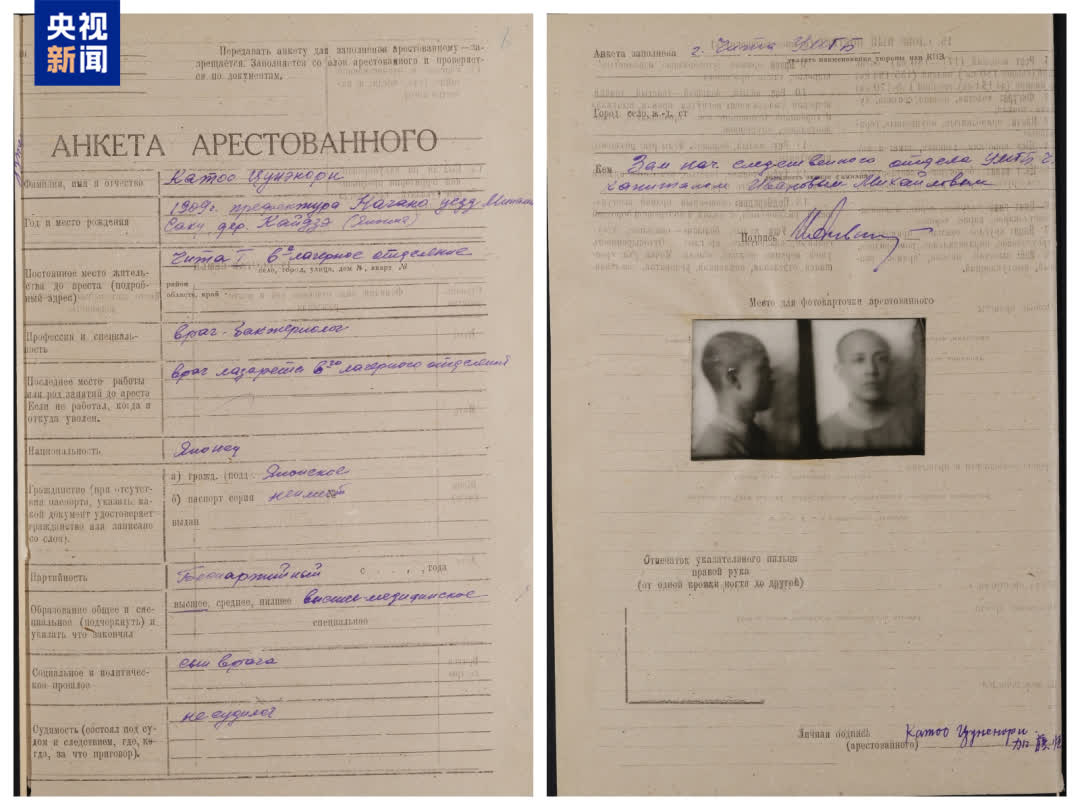 央视
新闻
Передавать анкету для заполнения арестованному — за-
прещается. Заполняется со слов арестованного и проверяет-
ся по документам.
АНКЕТА АРЕСТОВАННОГО
Фамилия, имя и отчество Катоо Цунэнори
Год и место рождения 1909г. префектура Нагано уезд Минами
Саку дер. Кайдзэ (Япония)
Постоянное место житель-
ства до ареста (подроб-
ный адрес)
Чита I 6е лагерное отделение
село, город, улица, дом №, кварт. №
район
область, край
Профессия и специаль-
ность
врач-бактериолог
Последнее место работы
или род занятий до ареста
Если не работал, когда и
откуда уволен.
врач лазарета 6го лагерного отделения
Национальность Японец
Гражданство (при отсутст-
вии паспорта, указать ка-
кой документ удостоверяет
гражданство или записано
со слов).
а) гражд. (подд. Японское
б) паспорт серия не имеет
выдан
Партийность Беспартийный с . . , , года
Образование общее и спе-
циальное (подчеркнуть) и
указать что закончил
высшее, среднее, низшее высшее-медицинское
специальное
Социальное и политичес-
кое прошлое
сын врача
Судимость (состоял под су-
дом и следствием, где, ко-
гда, за что приговор).
не судился
Анкета заполнена г. Чита
указать наименование тюрьмы или КПЗ
Город, село, ж.-д. ст
Кем Зам нач следственного отдела
капитаном Ивановым Михайловым
Подпись
Место для фотокарточки арестованного
Отпечаток указательного пальца
правой руки
(от одной кромки ногтя до другой)
Личная подпись
(арестованного)
Катоо Цунэнори